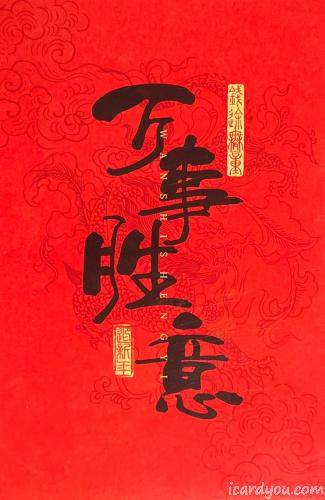 万事胜意
WANSHISHENGYI
icardyou.com